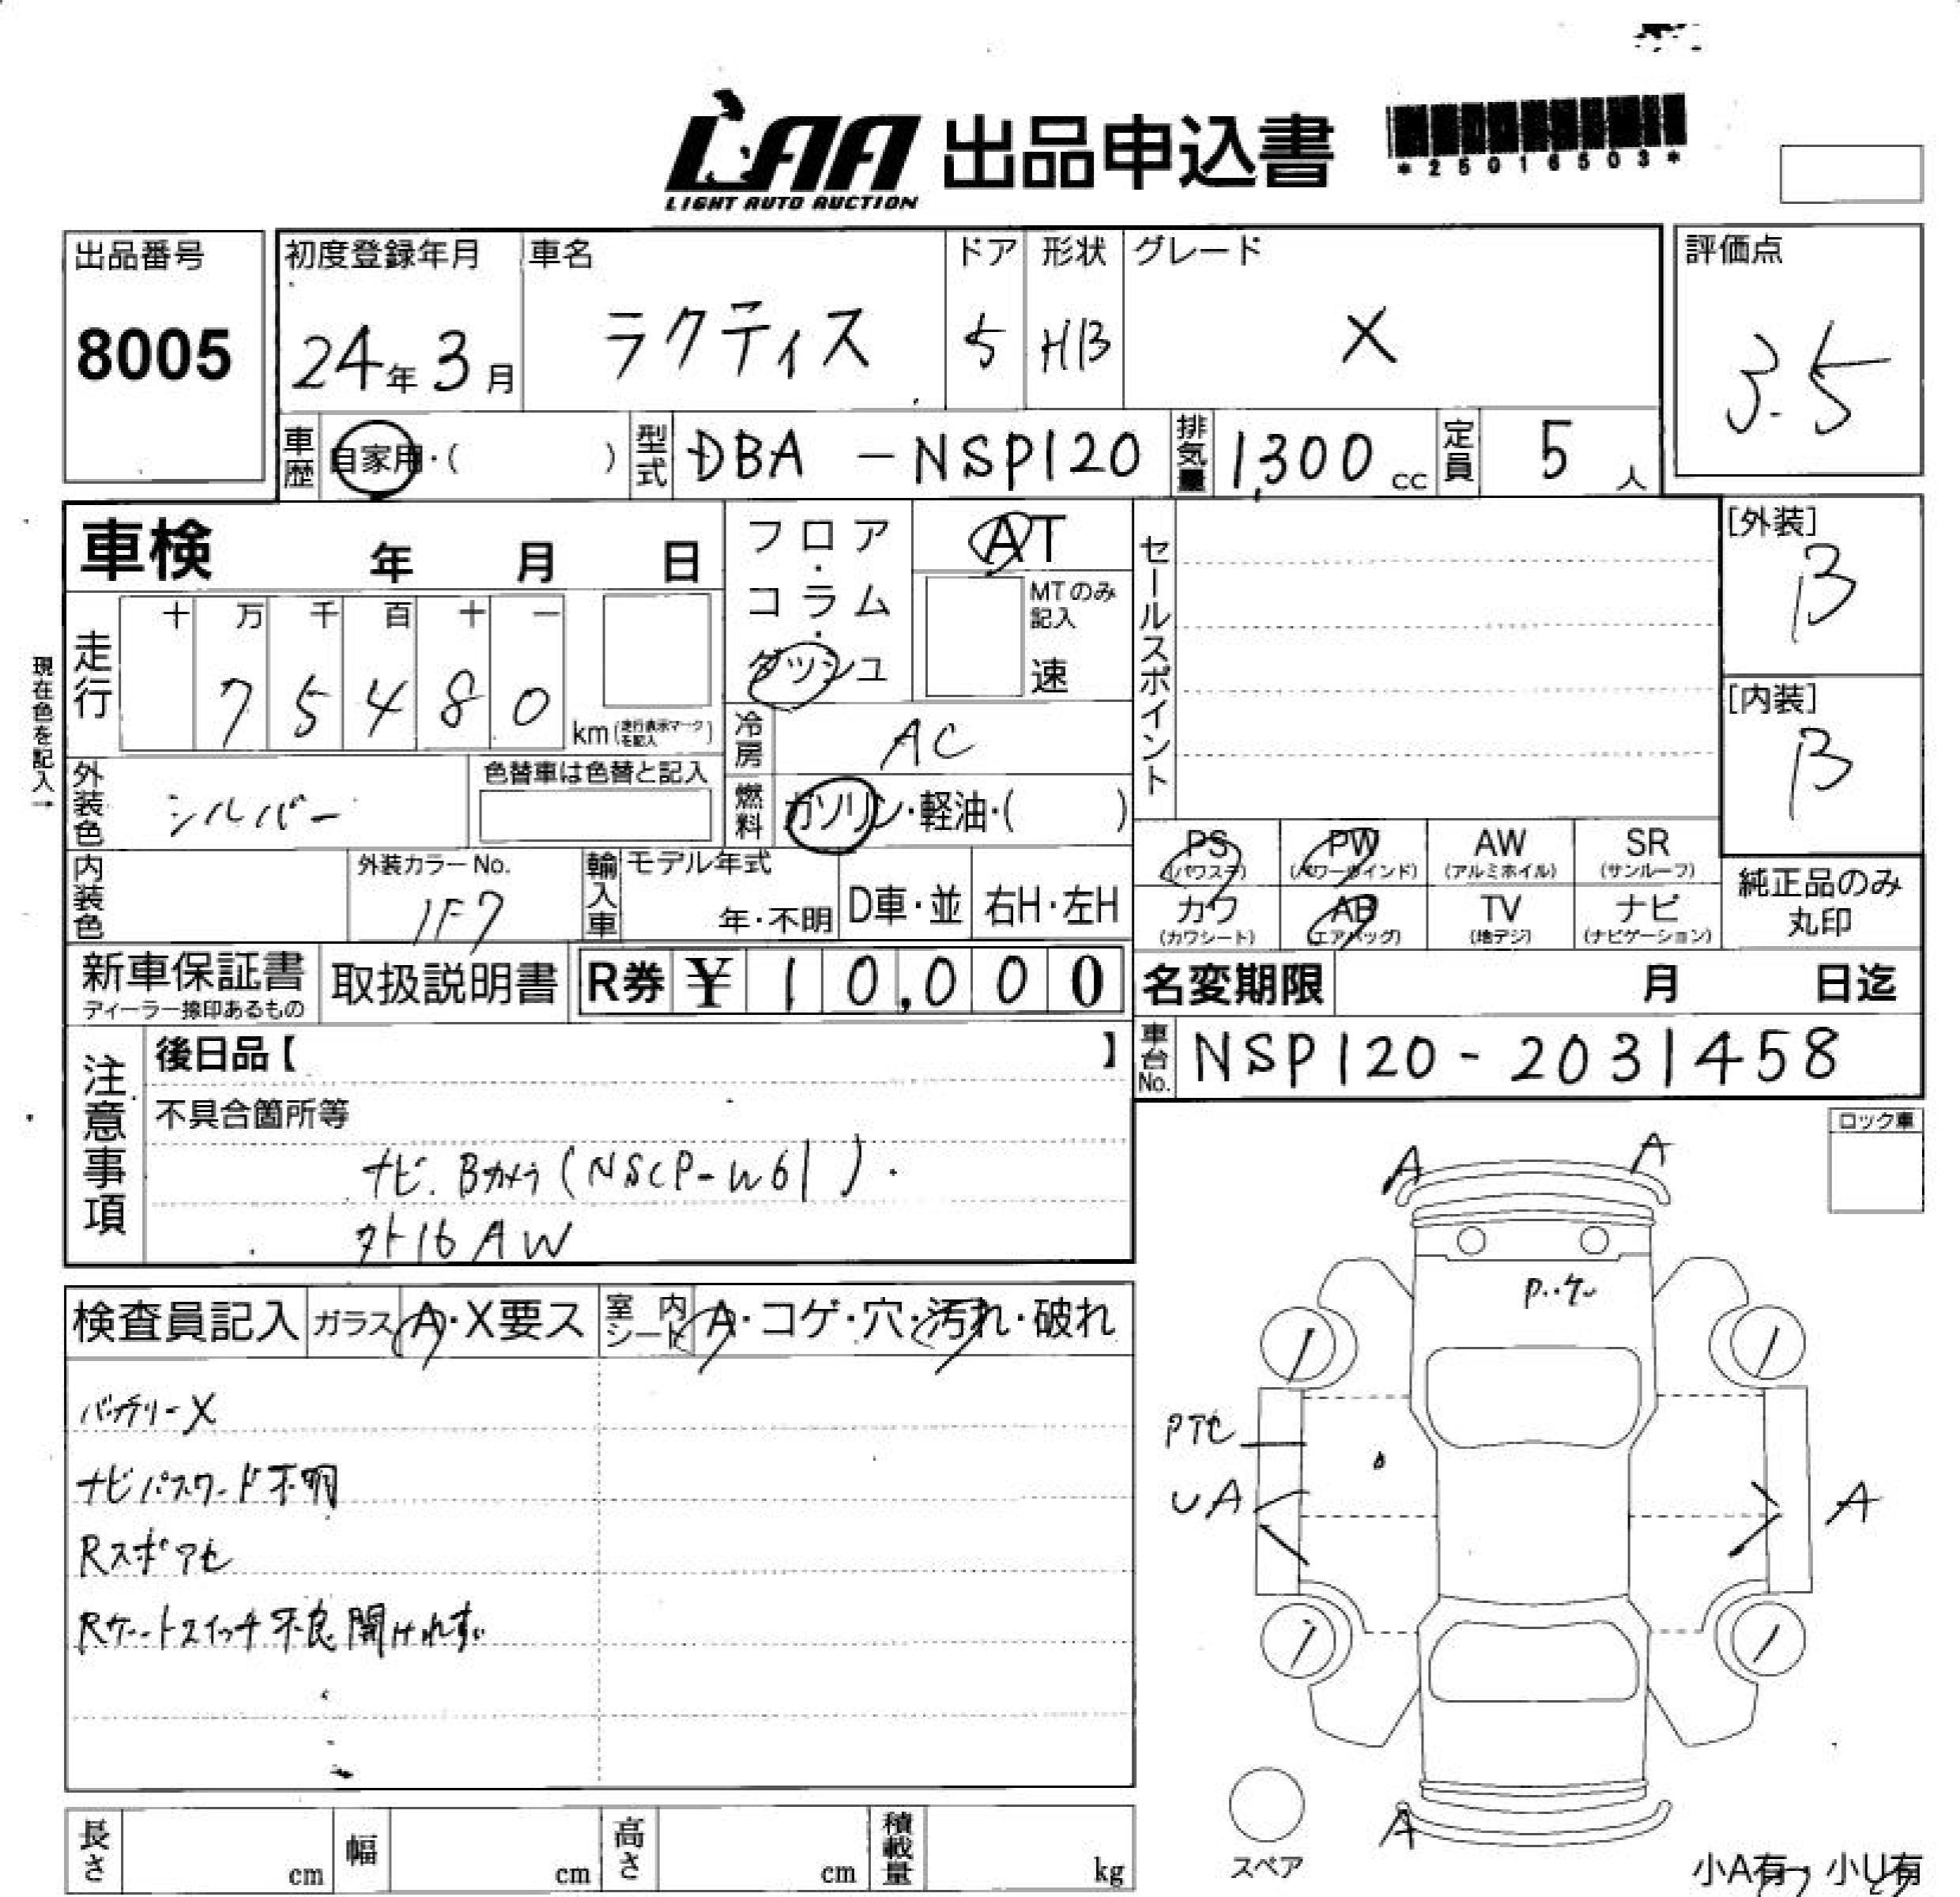 LAA 出品申込書
LIGHT AUTO AUCTION
*25016503*
出品番号 初度登録年月 車名 ドア 形状 グレード 評価点
8005 24年3月 ラクティス 5 HB X 3.5
車歴 自家用・( ) 型式 DBA-NSP120 排気量 1,300cc 定員 5人
車検 年 月 日
フロア・コラム・ダッシュ
AT
MTのみ記入
速
セールスポイント
[外装]
B
[内装]
B
現在色を記入→
走行 十 万 千 百 十 一
7 5 4 8 0
km(走行表示マークを記入)
冷房 AC
外装色 シルバー
色替車は色替と記入
燃料 ガソリン・軽油・( )
PS(パワステ) PW(パワーウインド) AW(アルミホイル) SR(サンルーフ)
カワ(カワシート) AB(エアバッグ) TV(地デジ) ナビ(ナビゲーション)
純正品のみ丸印
内装色
外装カラーNo.
1F7
輸入車 モデル年式 年・不明 D車・並 右H・左H
新車保証書 ディーラー捺印あるもの
取扱説明書
R券 ¥10,000
名変期限 月 日迄
車台No. NSP120-2031458
注意事項
後日品【 】
不具合箇所等
ナビ.Bカメラ(NSCP-W61).
外16AW
ロック車
検査員記入 ガラス A・X要ス 室内シート A・コゲ・穴・汚れ・破れ
バッテリーX
ナビパスワード不明
Rスポアセ
Rゲートスイッチ不良 開けれず
A A
Pアセ
UA
A
A
スペア
小A有 小U有
長さ cm 幅 cm 高さ cm 積載量 kg